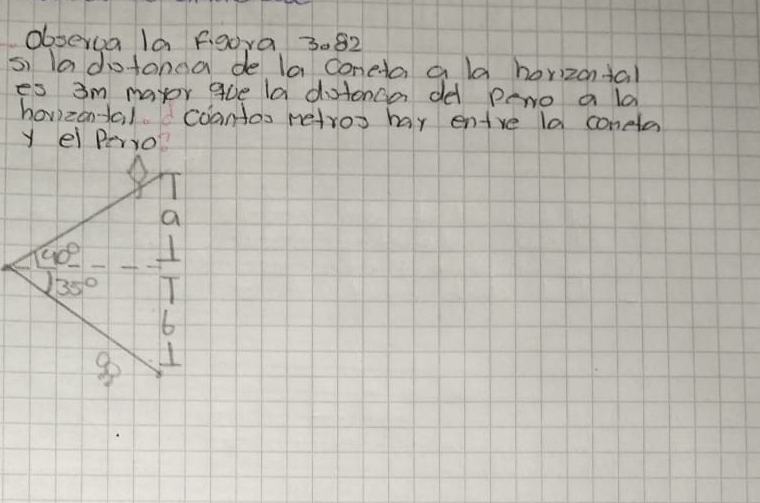 Observa la figura 3.82
si la distancia de la cometa a la horizontal
es 3m mayor que la distancia del perro a la
horizontal. ¿ cuantos metros hay entre la cometa
y el perro?
a
40°
35°
b